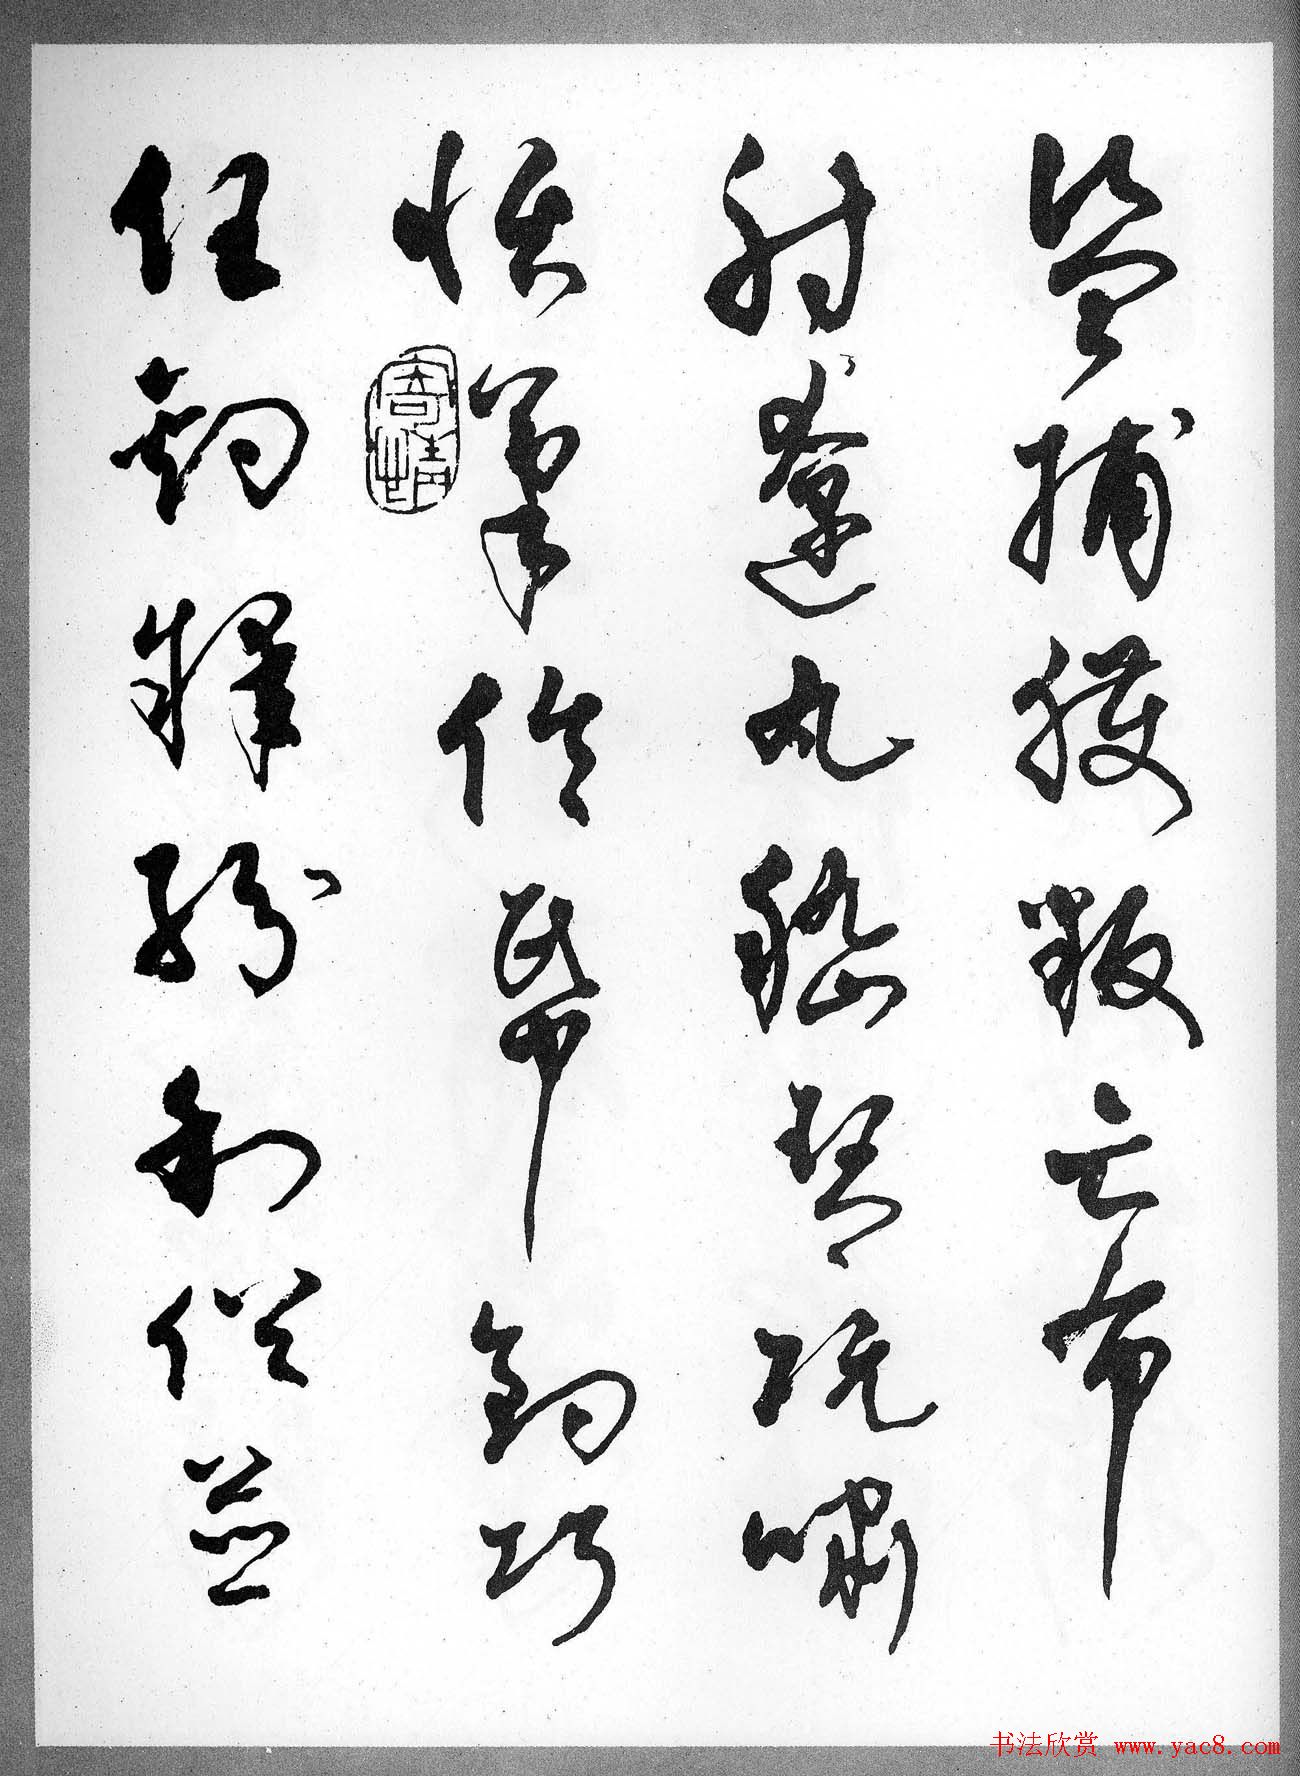 盜捕獲叛亡布
射遼丸嵇琴阮嘯
恬筆倫紙鈞巧
任釣釋紛利俗並
书法欣赏 www.yac8.com